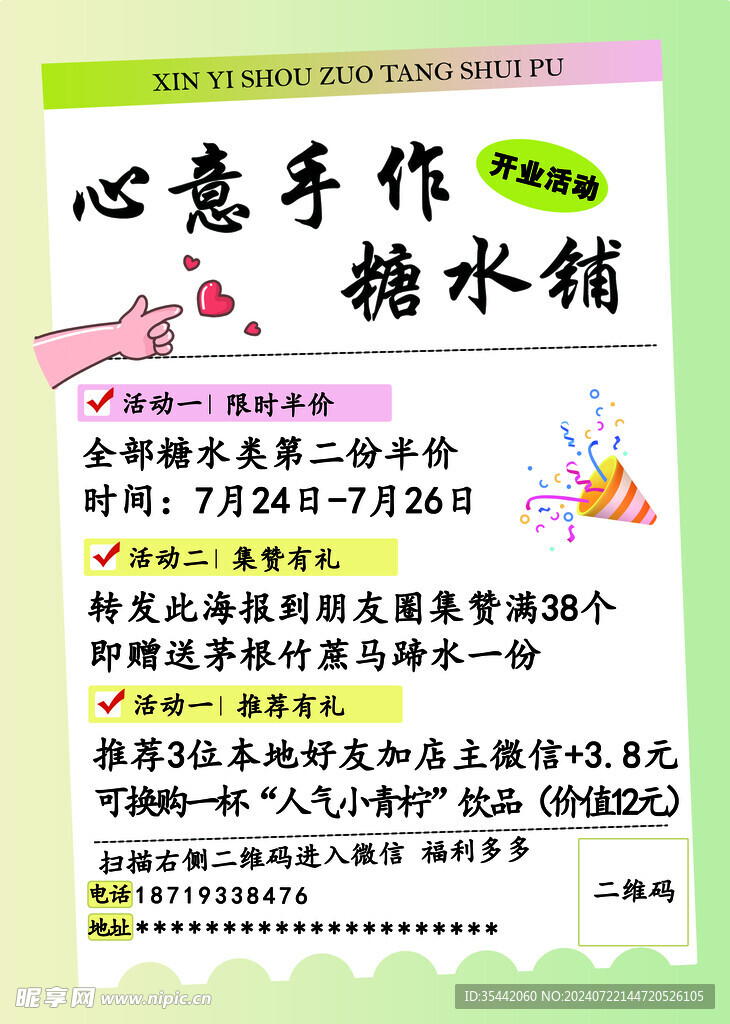 XIN YI SHOU ZUO TANG SHUI PU
心意手作
开业活动
糖水铺
活动一| 限时半价
全部糖水类第二份半价
时间：7月24日-7月26日
活动二| 集赞有礼
转发此海报到朋友圈集赞满38个
即赠送茅根竹蔗马蹄水一份
活动一| 推荐有礼
推荐3位本地好友加店主微信+3.8元
可换购一杯“人气小青柠”饮品（价值12元）
扫描右侧二维码进入微信 福利多多
电话18719338476
地址*********************
二维码
昵享网 www.nipic.cn
ID:35442060 NO:20240722144720526105